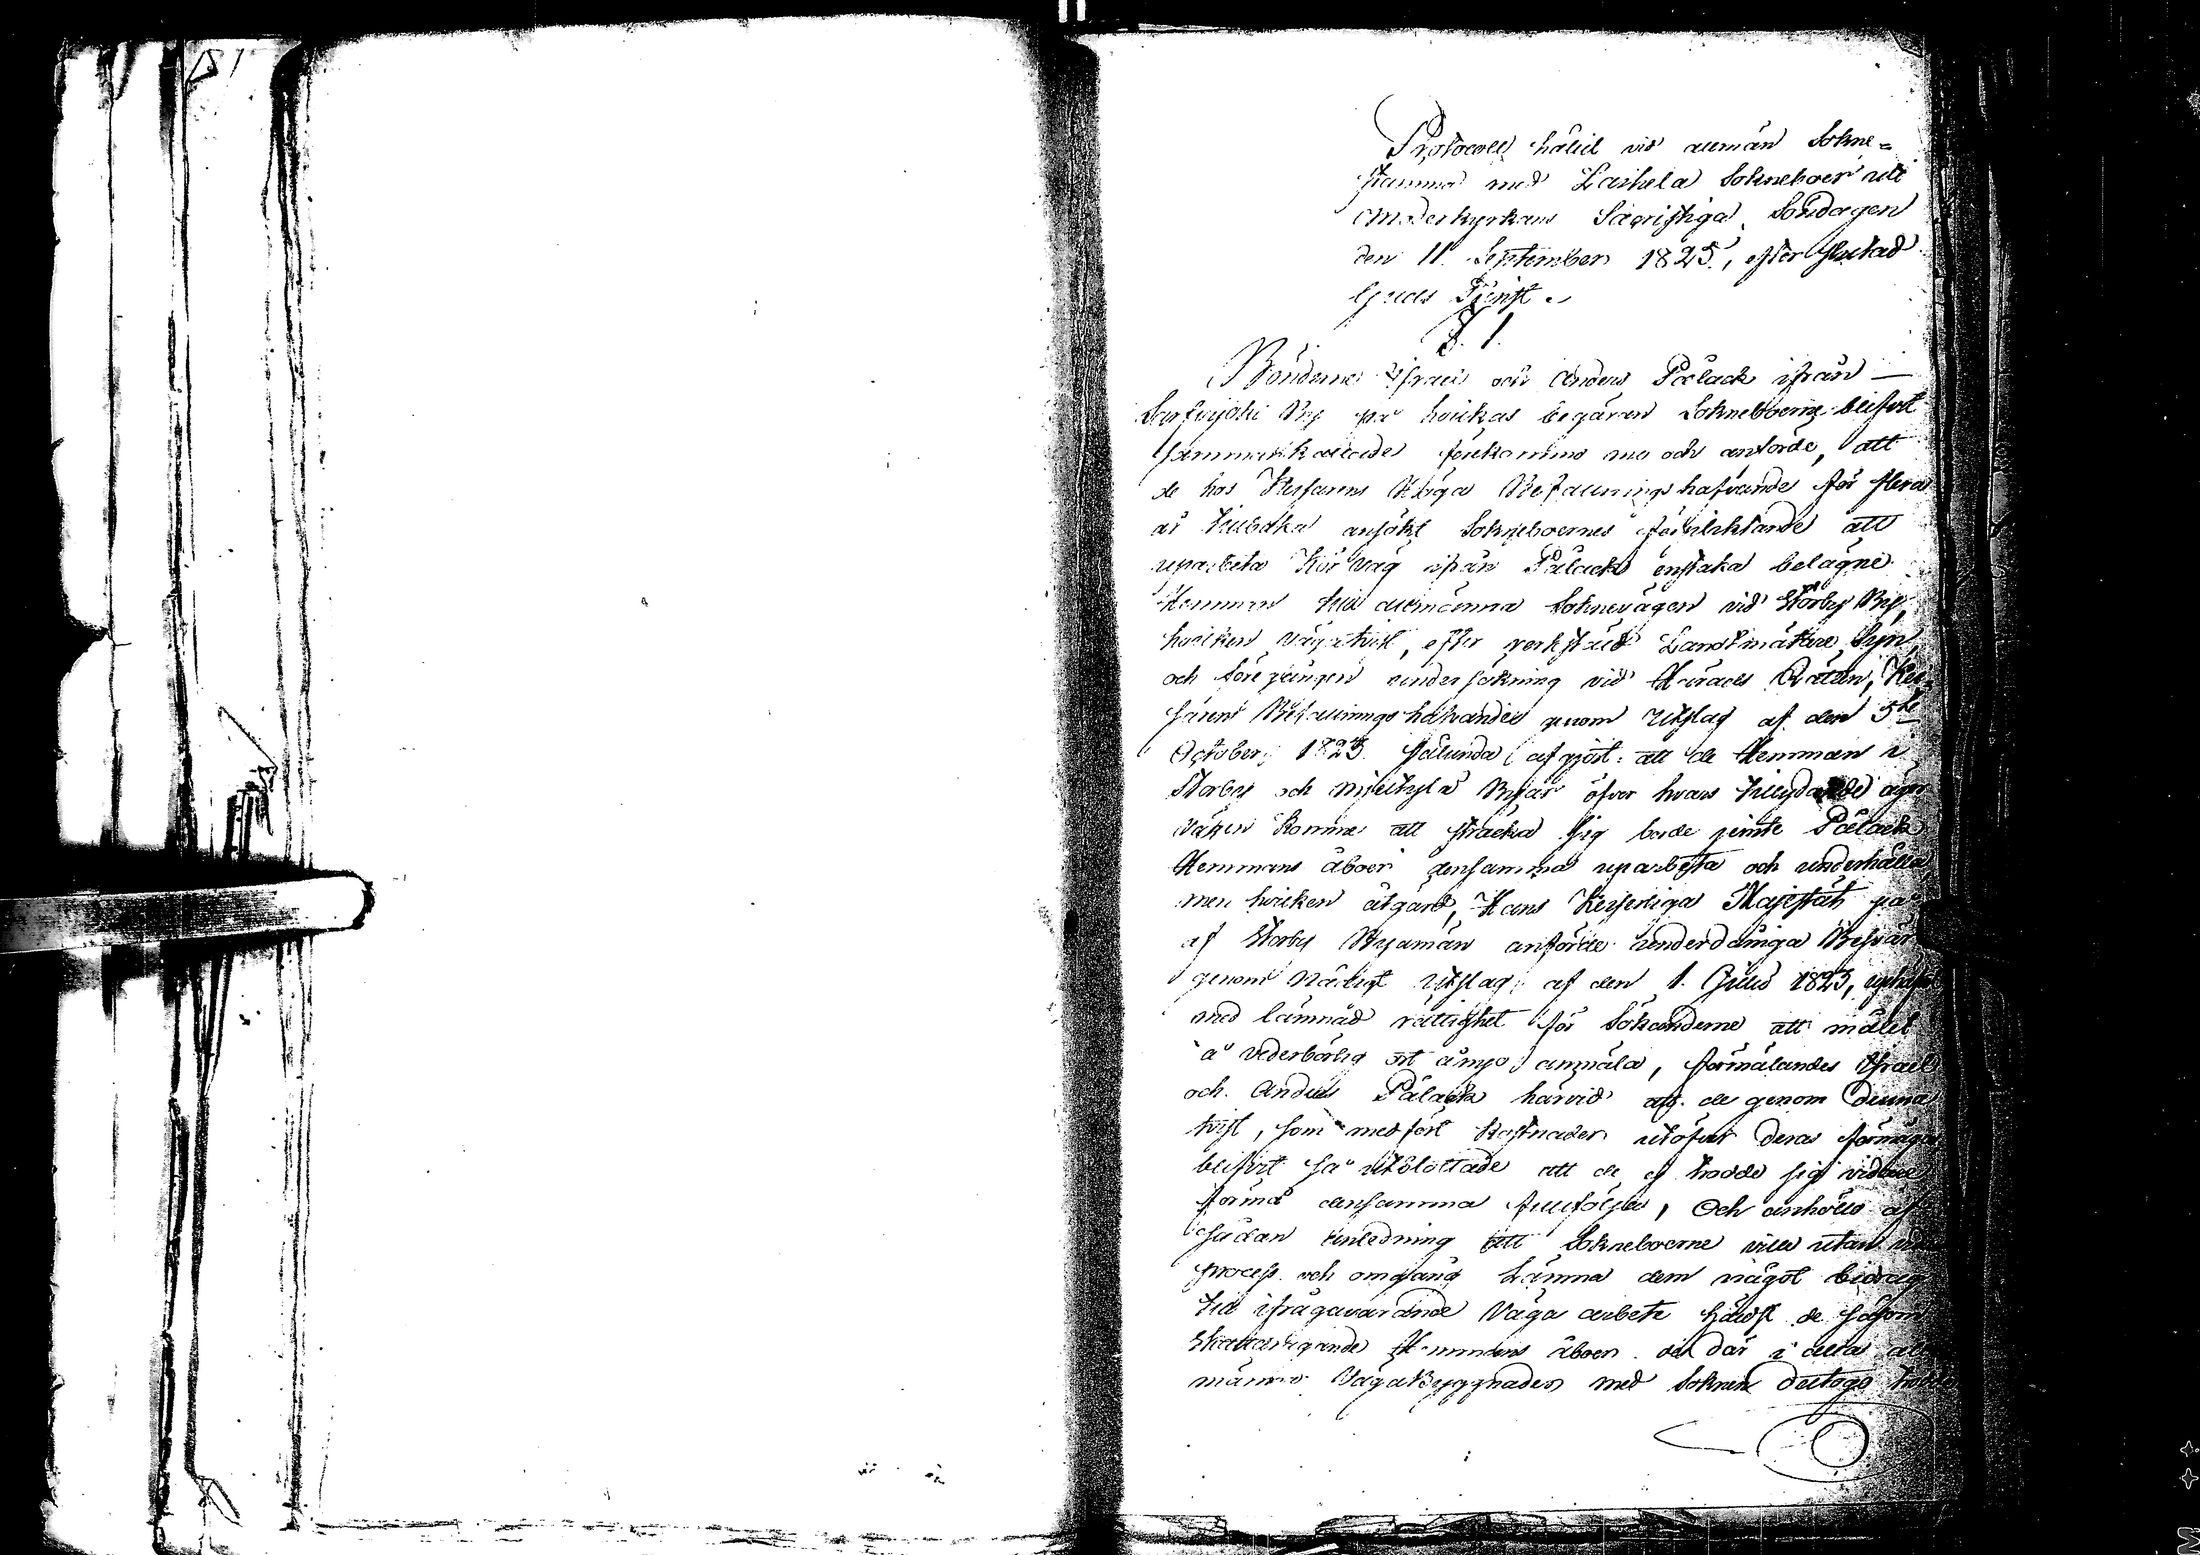 Protocoll hållit vid allmän Sokne=
stämma med Laihela Sokneboer uti
Moderkyrkans Sacristiga, Söndagen
den 11 September 1825, efter slutad
Guds Tjenst.
§. 1.
Bönderne Israel och Anders Pålack ifrån
By på hvilkas begäran Sokneboerne blifvit
sammankallade förekommo nu och anförde, att
de hos Kejsarens Höga Befallningshafvande för flera
år tillbaka ansökt Sokneboernes förpliktande att
uparbeta Kör väg ifrån Pålack enstaka belägne
Hemman till allmänna Sokne vägen vid Storby By,
hvilken vägatvist, efter verkstäld Landtmätare Syn,
och föregången undersökning vid Härads Rätten, Kej=
sarens Befallningshafvandes genom Utslag af den 3de
October 1823 sålunda afgjort: att de Hemman i
Storby och Byar öfver hvars ägor
vägen komme att sträcka sig borde jemte Pålack
Hemmans åboer densamma uparbeta och underhålla,
men hvilken åtgärd, Hans Kejserliga Majestät på
af Storby Byamän anförde underdåniga Besvär
genom Nådigt Utslag af den 1. Julii 1825, uphäft
med lämnad rättighet för Sökanderne att målet
å vederbörlig ort å nyo anmäla, förmälandes Israel
och Anders Pålack härvid att de genom denna
tvist, som medfört kostnader utöfver deras förmåga
blifvit så utblottade att de ej trodde sig vidare
förmå densamma fullfölja, Och anhöllo af
sådan anledning att Sokneboerne ville utan
process och omgång Lämna dem något bidrag
till ifrågavarande Väga arbete hälst de såsom
Hemmans åboer och där i alla all=
männa Vägabyggnader med Soknen deltogo